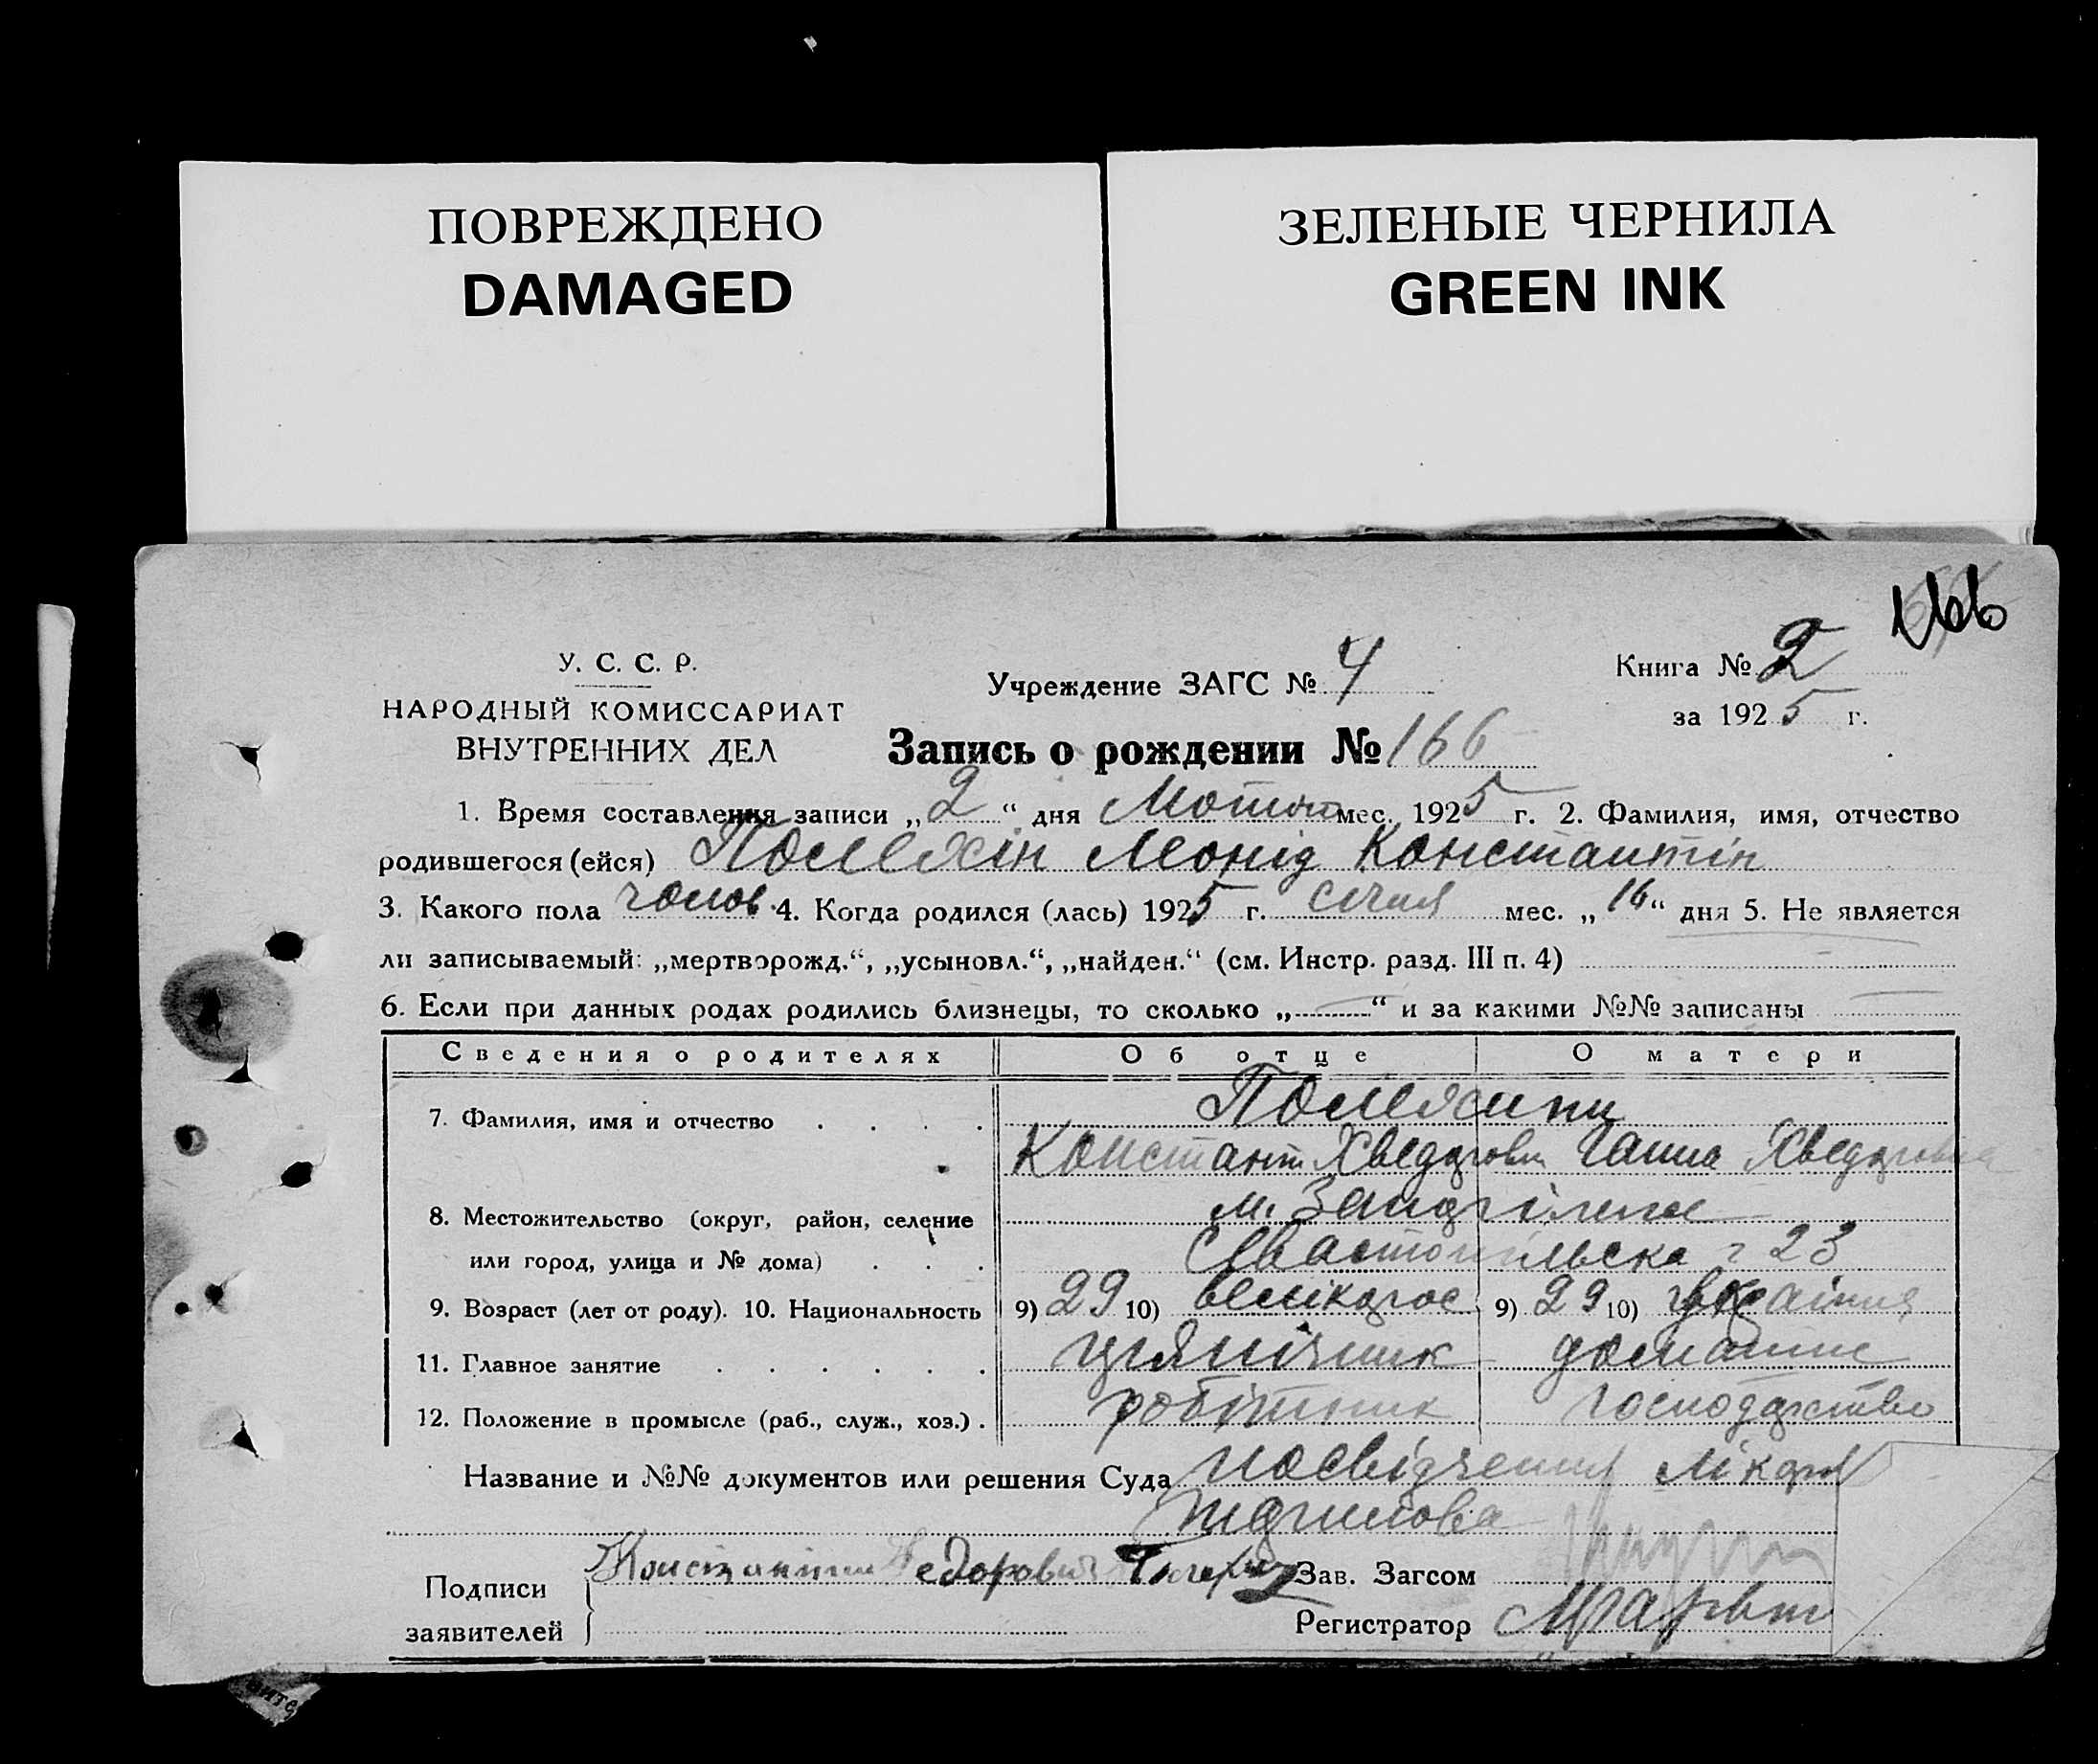 ПОВРЕЖДЕНО
DAMAGED
ЗЕЛЕНЫЕ ЧЕРНИЛА
GREEN INK
166
У. С. С. Р.
НАРОДНЫЙ КОМИССАРИАТ
ВНУТРЕННИХ ДЕЛ
Учреждение ЗАГС № 4
Книга № 2
за 1925 г.
Запись о рождении № 166
1. Время составления записи „2“ дня Мотого мес. 1925 г. 2. Фамилия, имя, отчество
родившегося (ейся) Помехін Леонід Константін
3. Какого пола чолов. 4. Когда родился (лась) 1925 г. січня мес. „16“ дня 5. Не является
ли записываемый: „мертворожд.“, „усыновл.“, „найден.“ (см. Инстр. разд. III п. 4)
6. Если при данных родах родились близнецы, то сколько „—“ и за какими №№ записаны
Сведения о родителях Об отце О матери
7. Фамилия, имя и отчество
Константин Хведорович Ганна Хведоровна
8. Местожительство (округ, район, селение
или город, улица и № дома)
м. Запоріжже
Севастопільска 23
9. Возраст (лет от роду). 10. Национальность 9) 29 10) великорос 9) 29 10) україн
11. Главное занятие домашне
12. Положение в промысле (раб., служ., хоз.) робітник господарство
Название и №№ документов или решения Суда посвідчення лікаря
Подписи
заявителей
Константин Федорович
Зав. Загсом
Регистратор